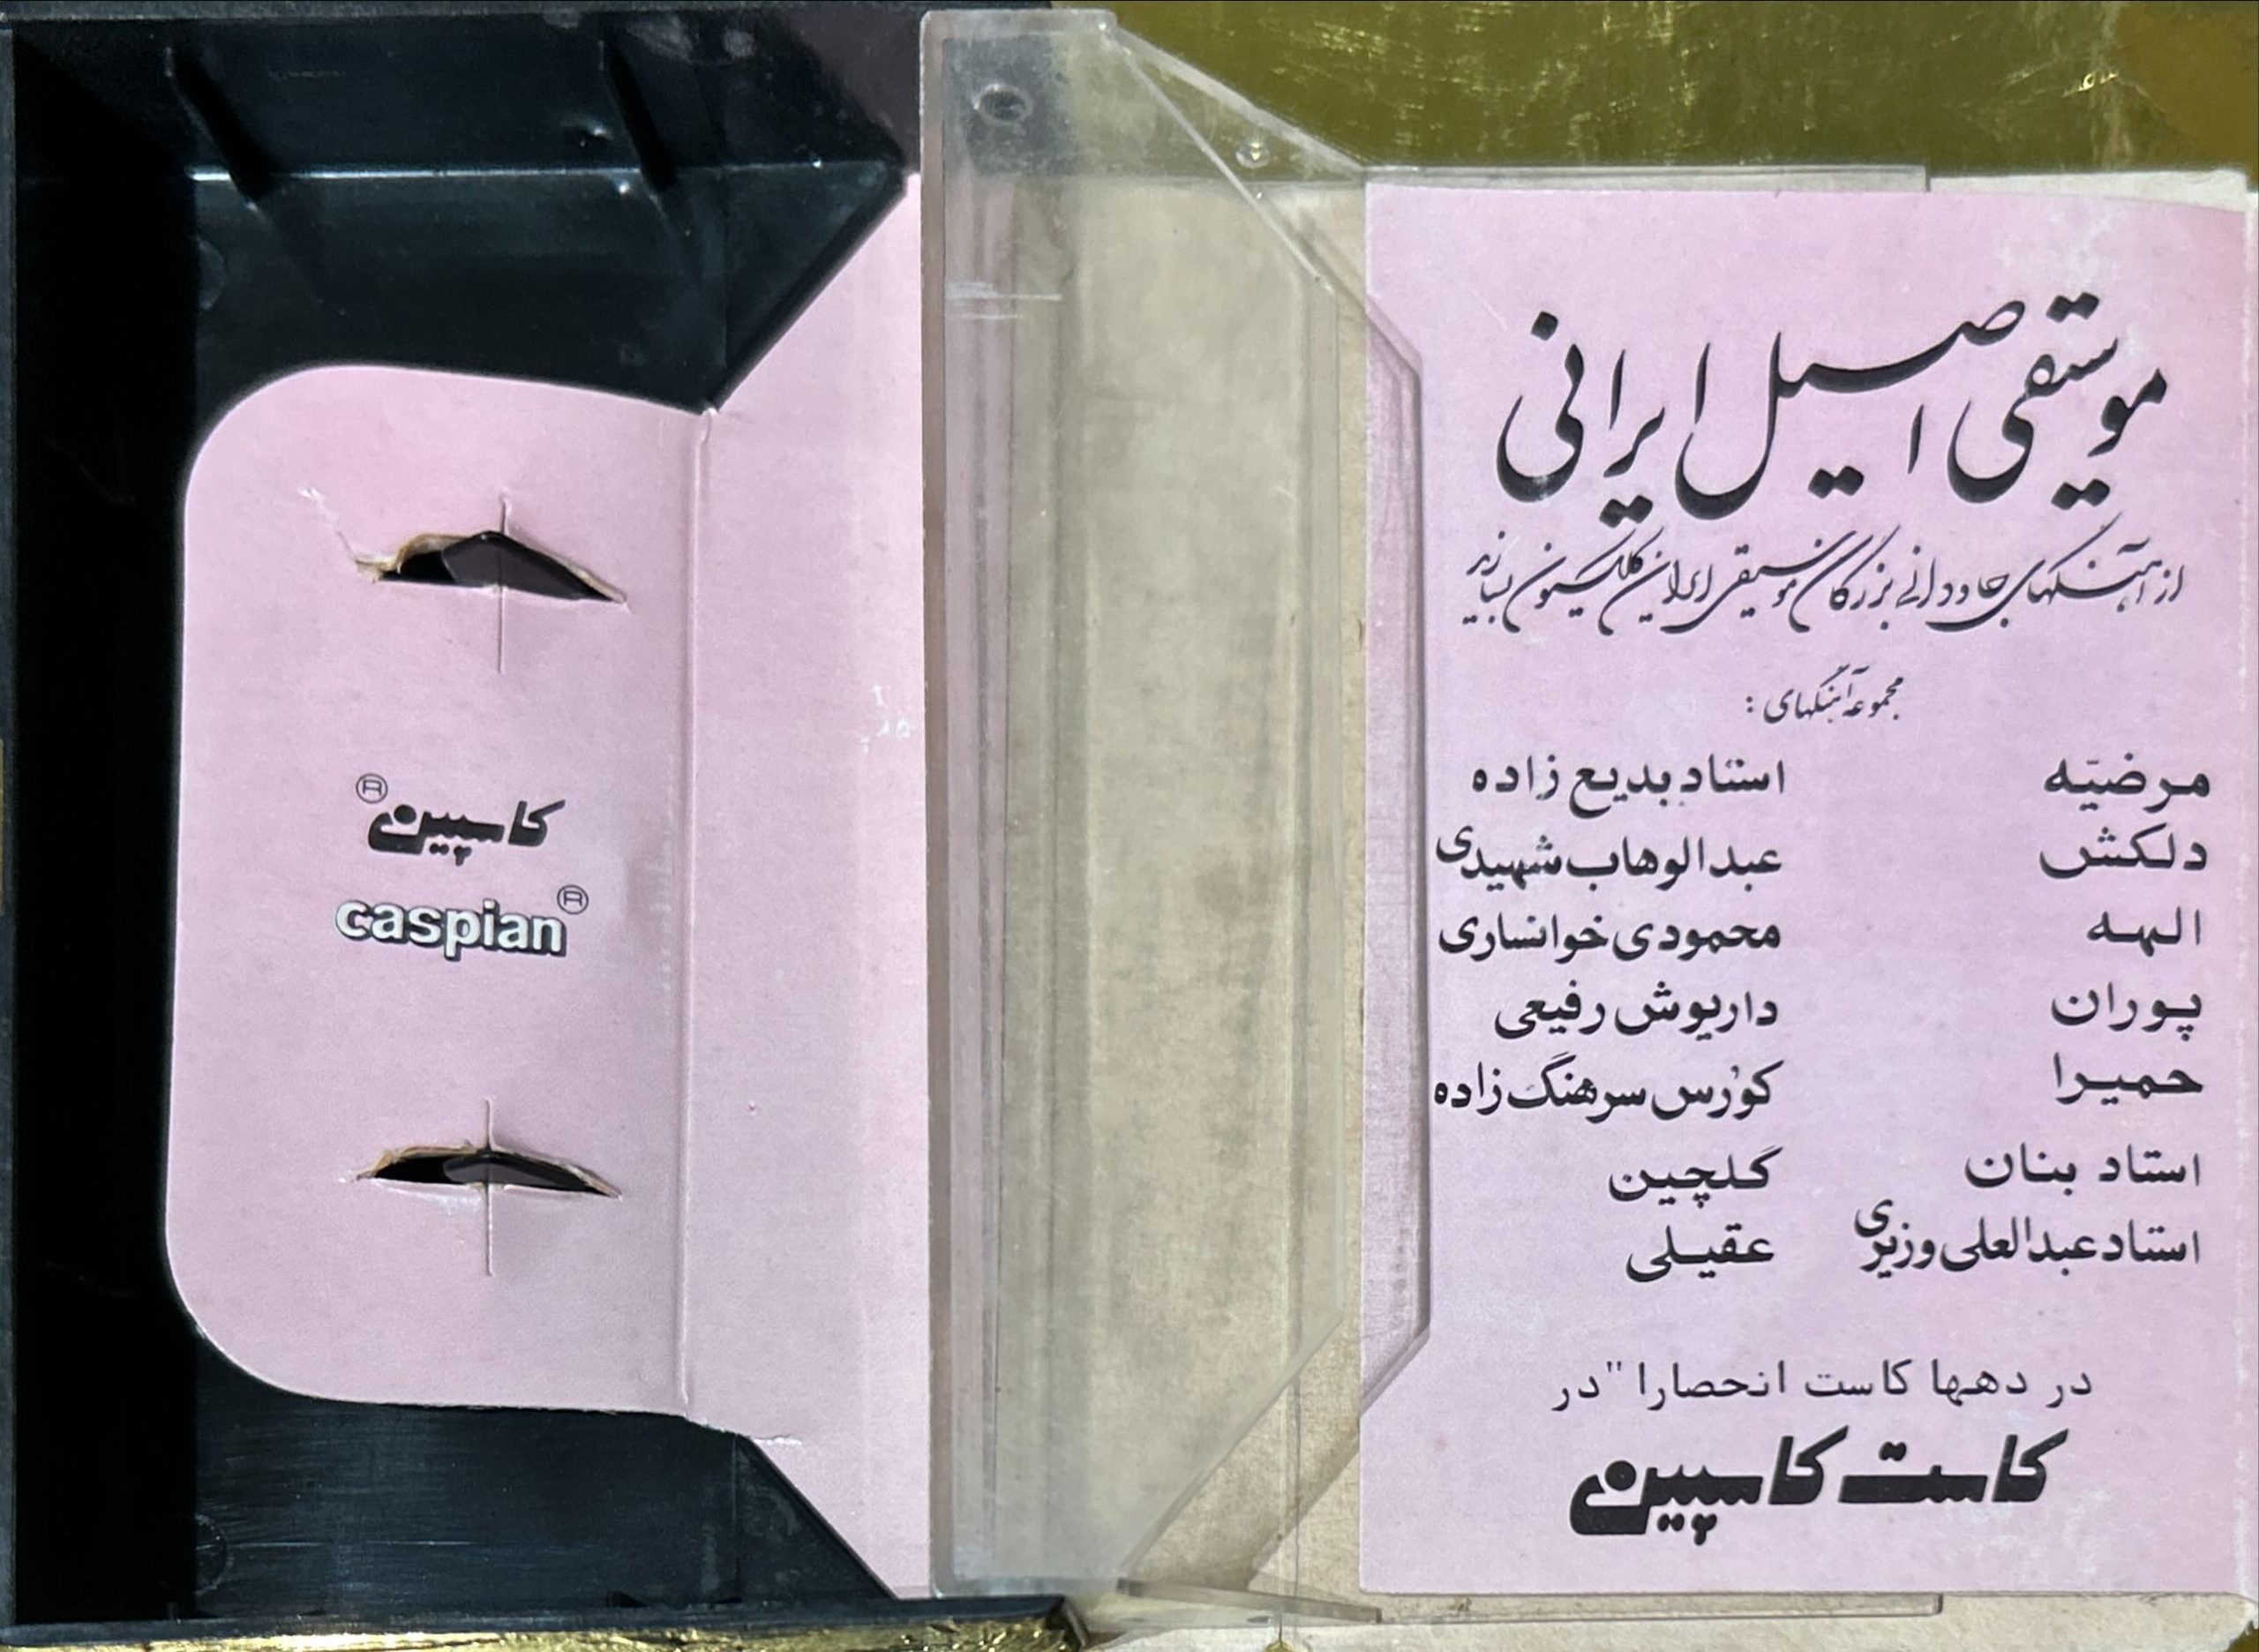 موسیقی اصیل ایرانی
از آهنگهای جاودانی بزرگان موسیقی ایران کلکسیون بسازید
مجموعه آهنگهای :
مرضیّه
دلکش
الهه
پوران
حمیرا
استاد بنان
استاد عبدالعلی وزیری
استاد بدیع زاده
عبدالوهاب شهیدی
محمودی خوانساری
داریوش رفیعی
کورس سرهنگ زاده
گلچین
عقیلی
در دهها کاست انحصارا" در
کاست کاسپین
کاسپین®
caspian®